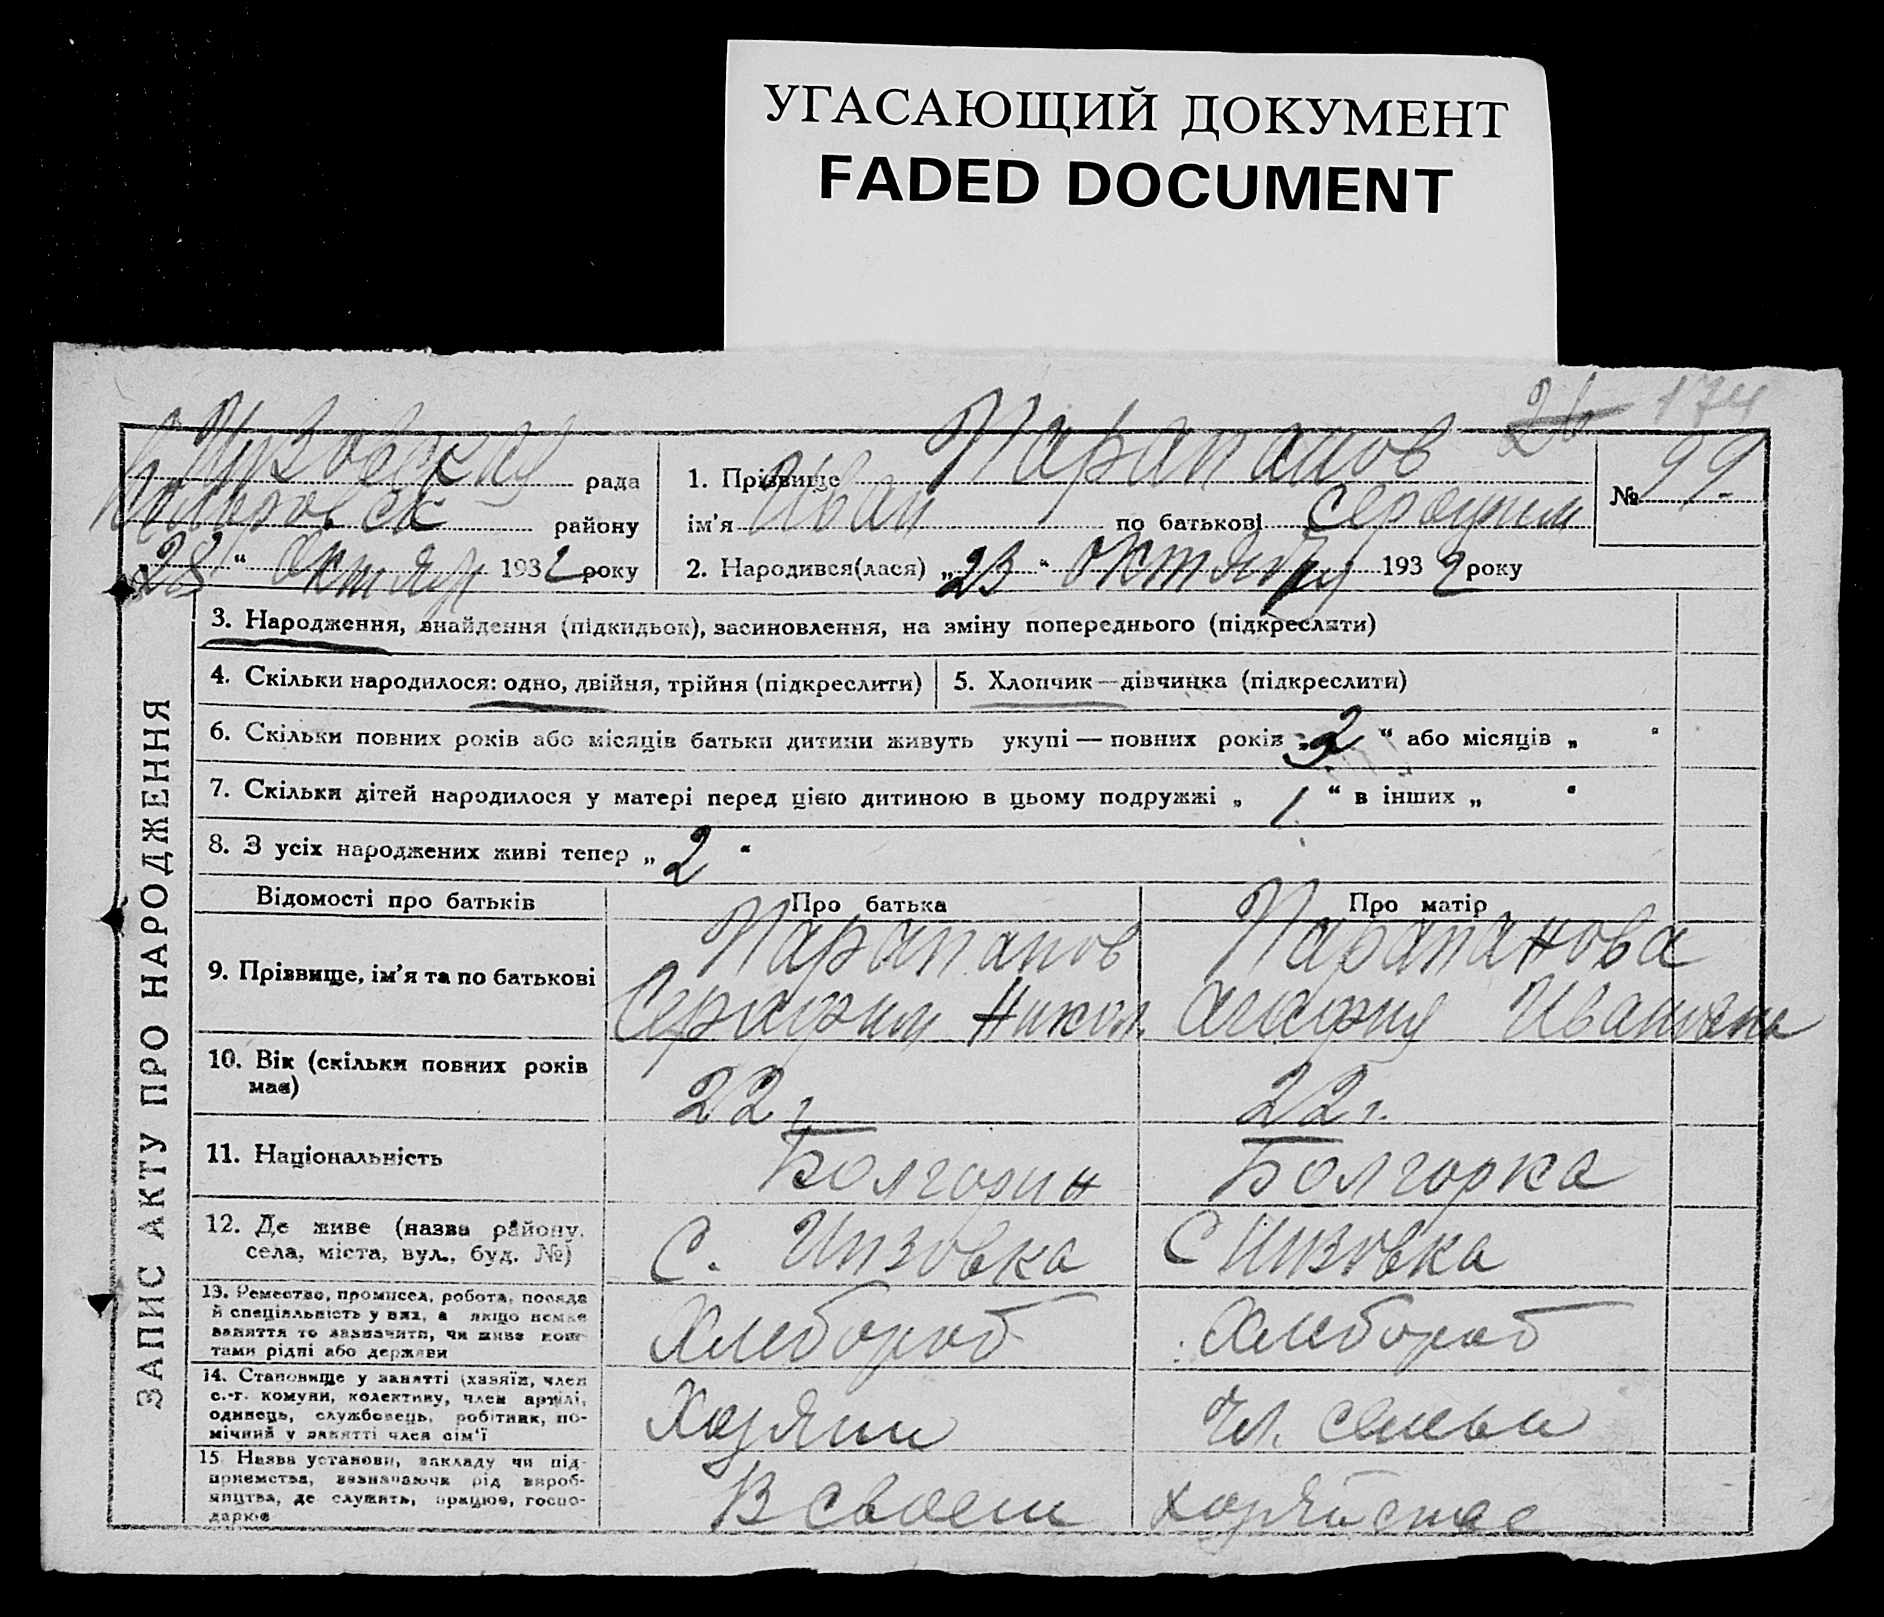 УГАСАЮЩИЙ ДОКУМЕНТ
FADED DOCUMENT
26 174
Инзовская рада
Коларовск району
28 " Октяр 1932 року
1. Прізвище Парапанов
ім'я Иван по батькові Серафим
2. Народився(лася) „23" октября 1932 року
№ 99.
ЗАПИС АКТУ ПРО НАРОДЖЕННЯ
3. Народження, знайдення (підкидьок), засиновлення, на зміну попереднього (підкреслити)
4. Скільки народилося: одно, двійня, трійня (підкреслити)
5. Хлопчик—дівчинка (підкреслити)
6. Скільки повних років або місяців батьки дитини живуть укупі — повних років „2" або місяців „ "
7. Скільки дітей народилося у матері перед цією дитиною в цьому подружжі „1" в інших „ "
8. З усіх народжених живі тепер „2"
Відомості про батьків Про батька Про матір
9. Прізвище, ім'я та по батькові
Парапанов
Серафим Никол.
Парапанова
Агафия Ивановна
10. Вік (скільки повних років
має)
22 г.
22 г.
11. Національність
Болгорин
Болгорка
12. Де живе (назва району,
села, міста, вул., буд. №)
С. Инзовка
С Инзовка
13. Ремество, промисел, робота, посада
й спеціяльність у них, а якщо немає
заняття то зазначити, чи живе кош-
тами рідні або держави
Хлебороб
Хлебороб
14. Становище у занятті (хазяїн, член
с.-г. комуни, колективу, член артілі,
одинець, службовець, робітник, по-
мічний у занятті член сім'ї
Хозяин
Чл. семьи
15. Назва установи, закладу чи під-
приємства, зазначаючи рід вироб-
ництва, де служить, працює, госпо-
дарює
В своем хозяйстве